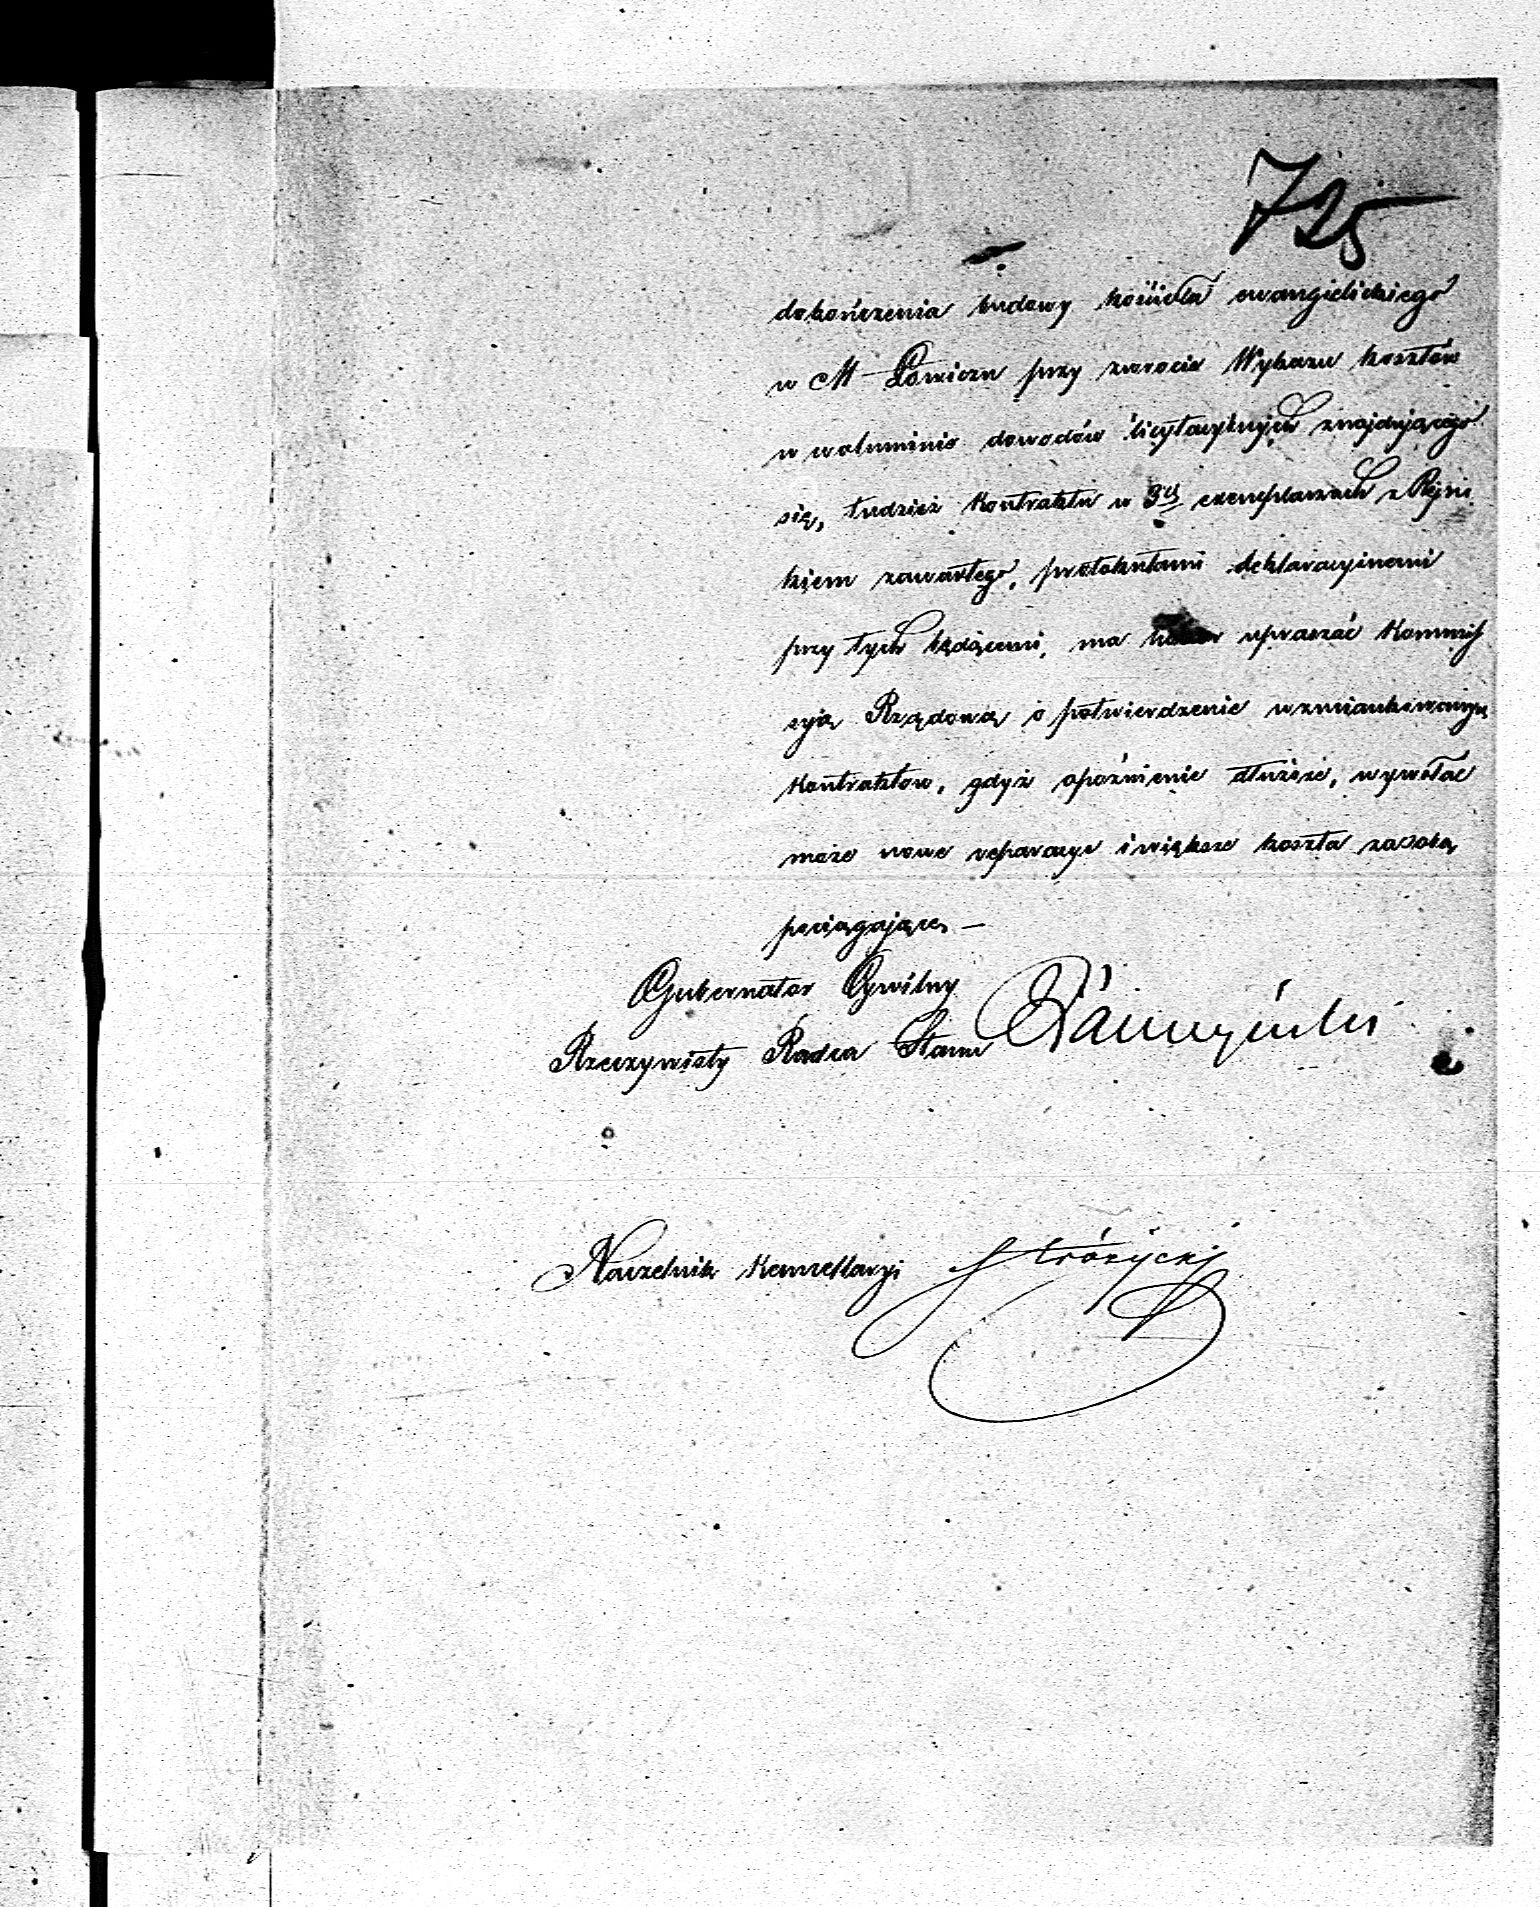 725
dokończenia budowy kościoła ewangielickiego
w M Łowiczu przy zwrocie Wykazu kosztów
w woluminie dowodów licytacyjnych znajdującego
się, tudzież kontraktu w 3ch exemplarzach z Rejni
kiem zawartego, protokułami deklaracyjnemi
przy tych będącemi, ma honor upraszać Kommis
syją Rządową o potwierdzenie wzmiankowanych
kontraktów, gdyż opóźnienie dłuższe, wywołać
może nowe reparacye i większe koszta za sobą
pociągające —
Gubernator Cywilny
Rzeczywisty Radca Stanu
Naczelnik Kancellaryi